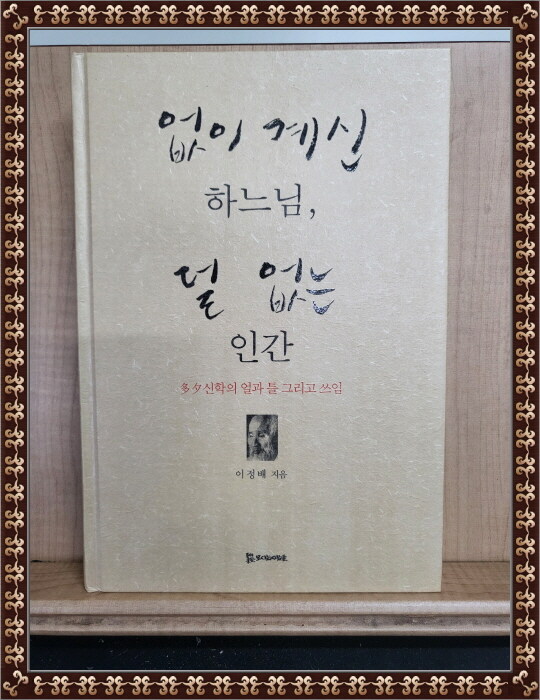 없이 계신
하느님,
덜 없는
인간
多夕신학의 얼과 틀 그리고 쓰임
이정배 지음